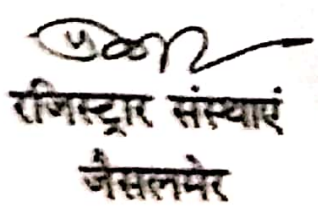 रजिस्ट्रार संस्थाएं
जैसलमेर